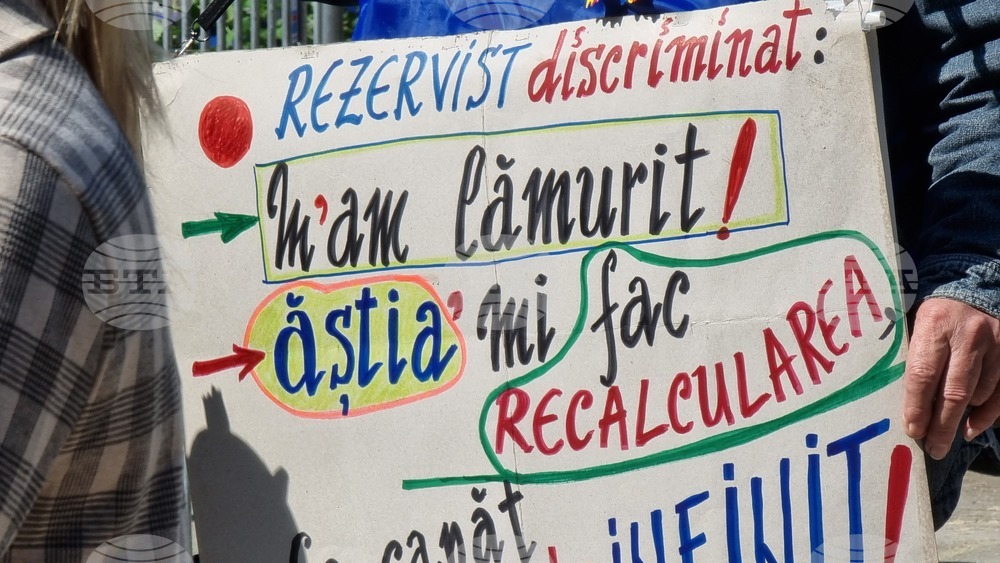 REZERVIST discriminat:
M'am lămurit!
ăștia' mi fac
RECALCULAREA,
capăt INFINIT!